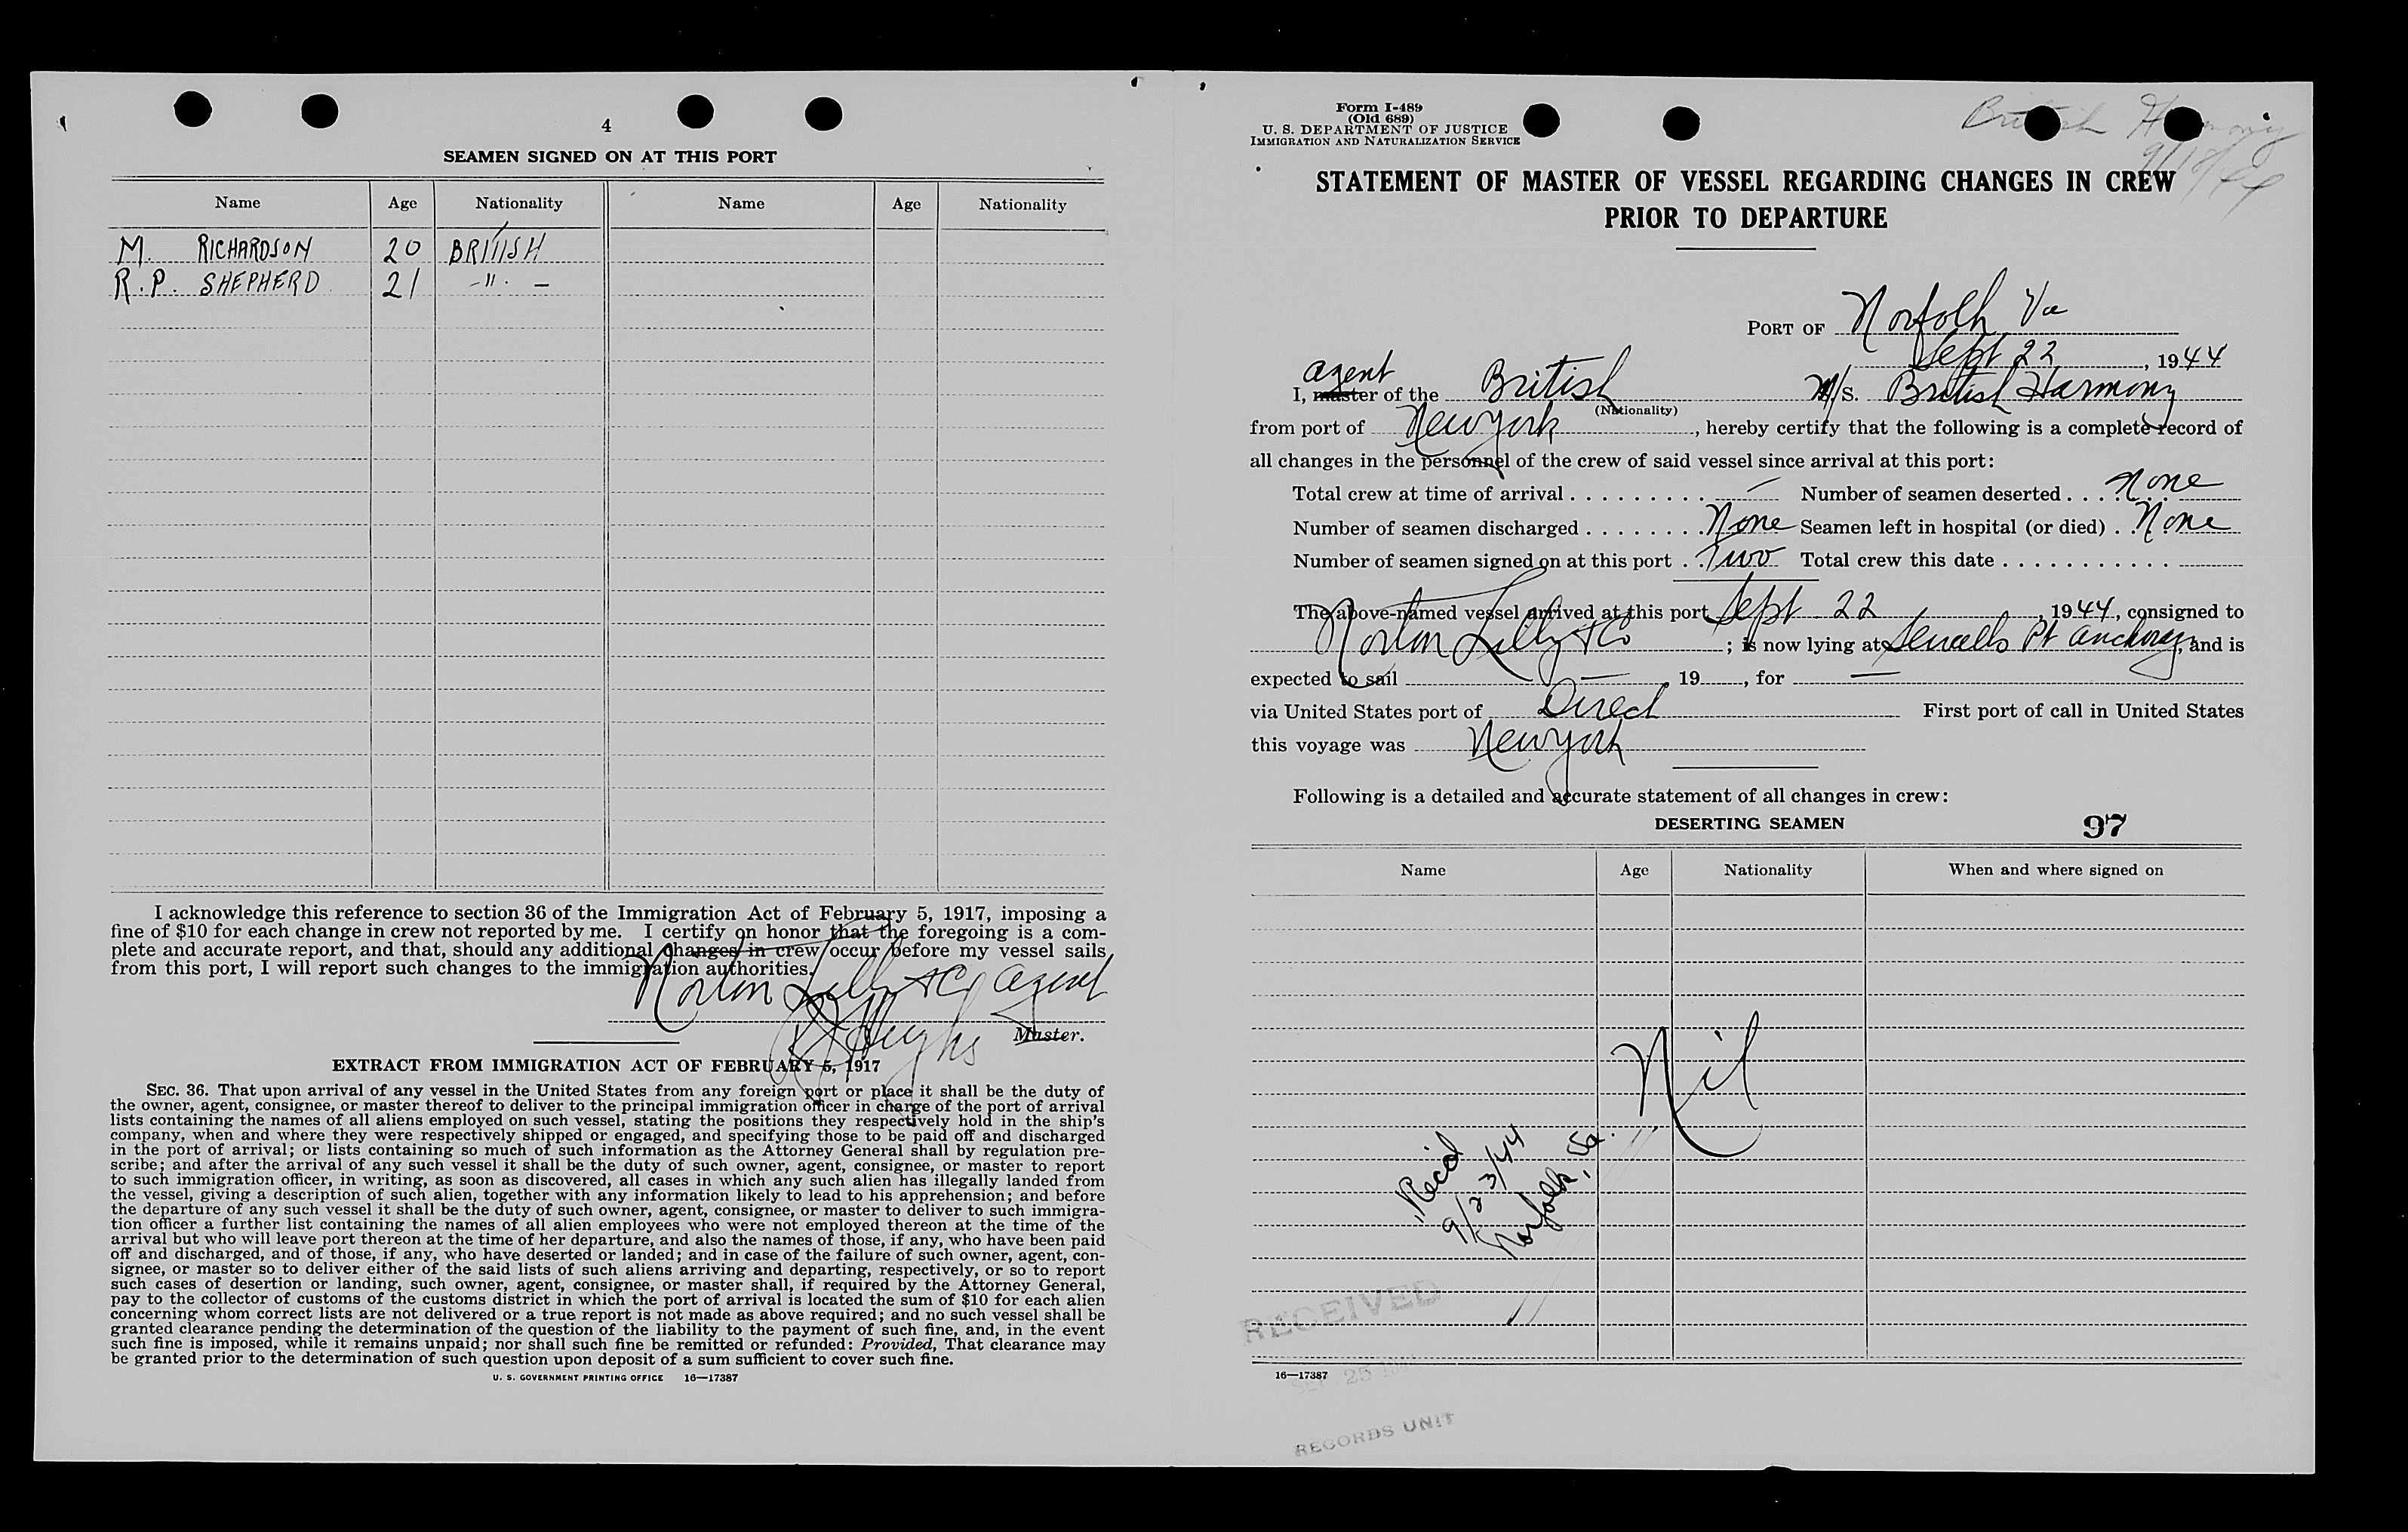 4
SEAMEN SIGNED ON AT THIS PORT
Name Age Nationality Name Age Nationality
M. RICHARDSON 20 BRITISH
R.P. SHEPHERD 21 -"- 
I acknowledge this reference to section 36 of the Immigration Act of February 5, 1917, imposing a
fine of $10 for each change in crew not reported by me. I certify on honor that the foregoing is a com-
plete and accurate report, and that, should any additional changes in crew occur before my vessel sails
from this port, I will report such changes to the immigration authorities.
Norton Lilly & Co agent
Hughs
Master.
EXTRACT FROM IMMIGRATION ACT OF FEBRUARY 5, 1917
SEC. 36. That upon arrival of any vessel in the United States from any foreign port or place it shall be the duty of
the owner, agent, consignee, or master thereof to deliver to the principal immigration officer in charge of the port of arrival
lists containing the names of all aliens employed on such vessel, stating the positions they respectively hold in the ship's
company, when and where they were respectively shipped or engaged, and specifying those to be paid off and discharged
in the port of arrival; or lists containing so much of such information as the Attorney General shall by regulation pre-
scribe; and after the arrival of any such vessel it shall be the duty of such owner, agent, consignee, or master to report
to such immigration officer, in writing, as soon as discovered, all cases in which any such alien has illegally landed from
the vessel, giving a description of such alien, together with any information likely to lead to his apprehension; and before
the departure of any such vessel it shall be the duty of such owner, agent, consignee, or master to deliver to such immigra-
tion officer a further list containing the names of all alien employees who were not employed thereon at the time of the
arrival but who will leave port thereon at the time of her departure, and also the names of those, if any, who have been paid
off and discharged, and of those, if any, who have deserted or landed; and in case of the failure of such owner, agent, con-
signee, or master so to deliver either of the said lists of such aliens arriving and departing, respectively, or so to report
such cases of desertion or landing, such owner, agent, consignee, or master shall, if required by the Attorney General,
pay to the collector of customs of the customs district in which the port of arrival is located the sum of $10 for each alien
concerning whom correct lists are not delivered or a true report is not made as above required; and no such vessel shall be
granted clearance pending the determination of the question of the liability to the payment of such fine, and, in the event
such fine is imposed, while it remains unpaid; nor shall such fine be remitted or refunded: Provided, That clearance may
be granted prior to the determination of such question upon deposit of a sum sufficient to cover such fine.
U. S. GOVERNMENT PRINTING OFFICE 16—17387
Form I-489
(Old 689)
U. S. DEPARTMENT OF JUSTICE
IMMIGRATION AND NATURALIZATION SERVICE
British Harmony
STATEMENT OF MASTER OF VESSEL REGARDING CHANGES IN CREW
PRIOR TO DEPARTURE
PORT OF Norfolk Va
Sept 22, 1944
agent
I, master of the British M/S. British Harmony
(Nationality)
from port of New York, hereby certify that the following is a complete record of
all changes in the personnel of the crew of said vessel since arrival at this port:
Total crew at time of arrival — Number of seamen deserted None
Number of seamen discharged None Seamen left in hospital (or died) None
Number of seamen signed on at this port Two Total crew this date
The above-named vessel arrived at this port Sept 22, 1944, consigned to
Norton Lilly & Co; is now lying at Sewells Pt anchorage, and is
expected to sail —, 19, for —
via United States port of Direct First port of call in United States
this voyage was New York
Following is a detailed and accurate statement of all changes in crew:
DESERTING SEAMEN 97
Name Age Nationality When and where signed on
Nil
Rec'd
9/23/44
Norfolk, Va.
RECEIVED
16—17387
RECORDS UNIT